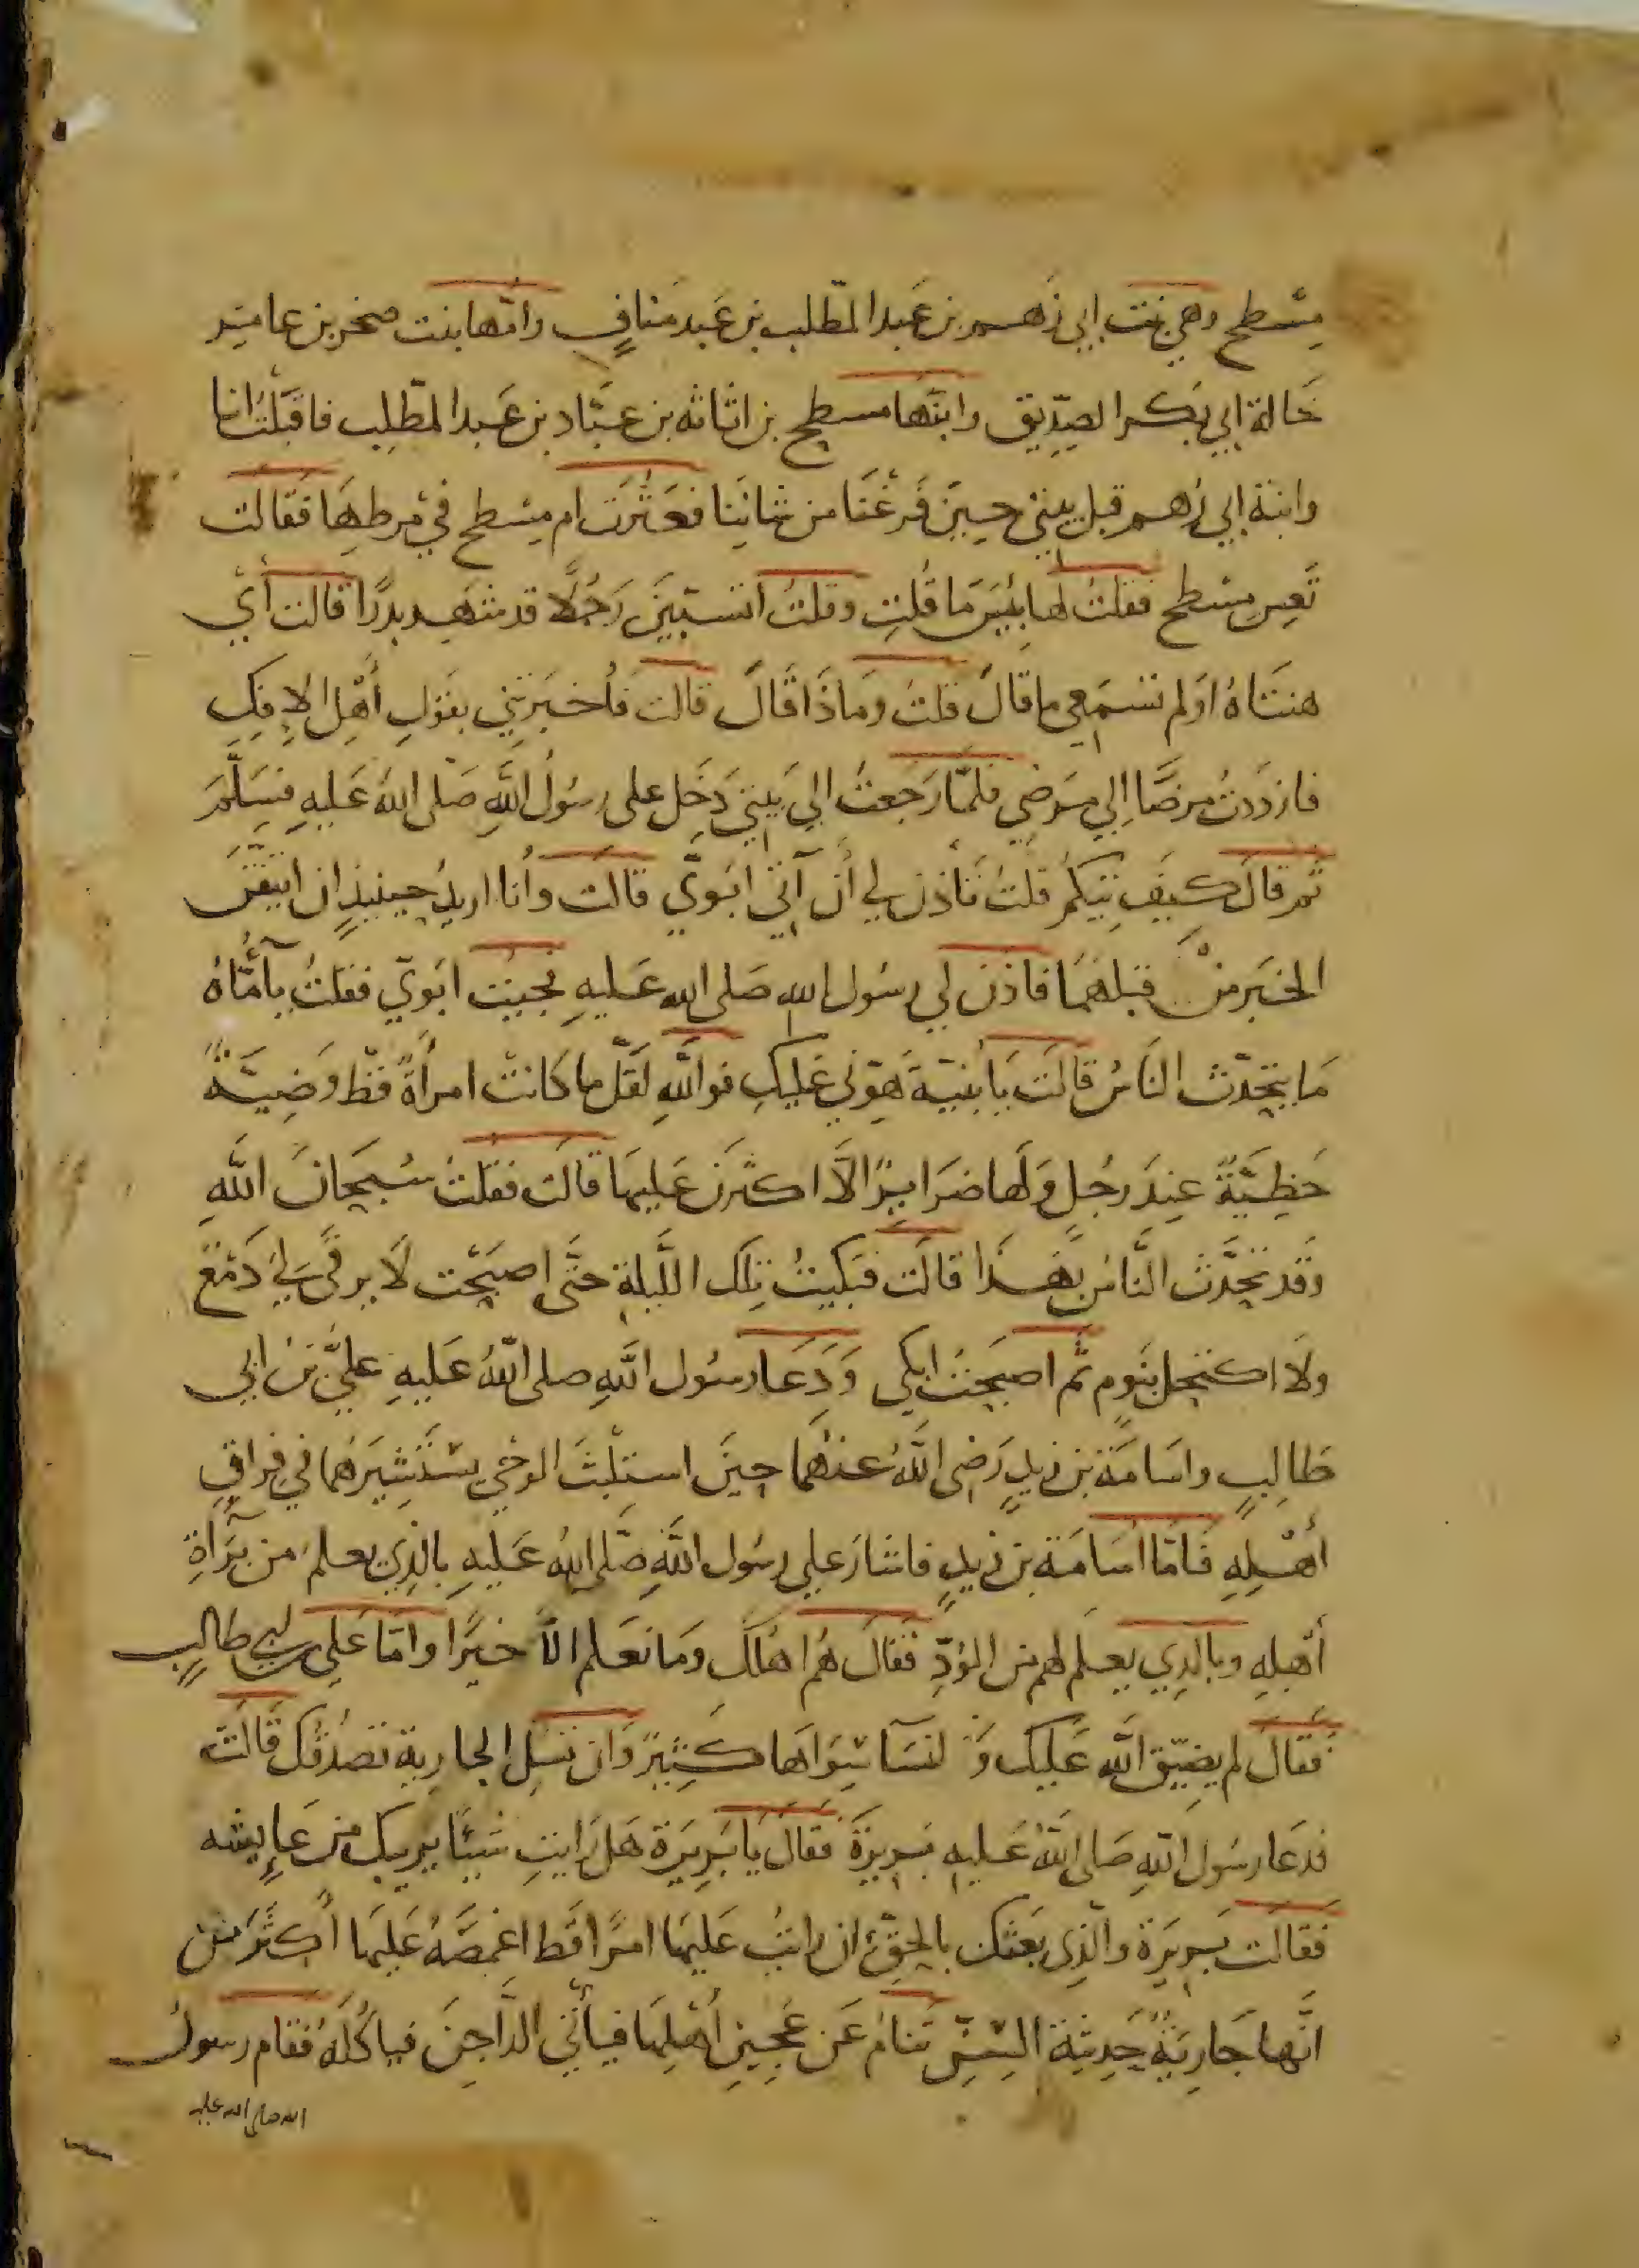 مِسْطح وهي بنت ابي رُهم بن عَبد المطّلب بن عَبد مَنافٍ وامّها بنت صخر بن عامِر
خَالة ابي بَكر الصِدّيق وابنها مسطح بن اثاثه بن عبّاد بن عَبد المطّلِب فاقبَلْتُ انا
وابنة ابي رُهم قبل بيتي حِينَ فَرغْنَا من شانِنا فعَثَرَت ام مِسْطح في مْرطِهَا فَقالت
تَعِسَ مِسْطح فقلتُ لها بئِسَ مَا قُلتِ وقلتُ اتسبّينَ رَجُلًا قد شهِد بدرًا قالت أيْ
هنتَاهُ اوَلم تسْمَعي ما قال قلتُ وَمَاذَا قَالَ قالت فأخبَرتني بقَولِ أهْلِ الإفكِ
فازدَدتُ مرضًا إلي مَرضي فلمّا رَجَعتُ الي بَيتي دَخَل على رسُولُ اللَّهِ صَلى اللهُ عَليهِ فسَلَّمَ
ثم قالَ كيفَ تِيكُم قلتُ تَأذن لي أن آتي ابَويَّ قالت وأنا اريدُ حِينئذٍ ان اتيقّنَ
الخبَر منْ قبلهُمَا فاذن لي رسُول الله صَلى الله عَليهِ فجيئت ابَويّ فقلتُ يآ أمّتاهُ
مَا يتحَدّث النَاسُ قالَت يَا بُنيّة هَوّني عَليكِ فوالَّلهِ لقَلّ ما كَانتْ امرأةً قطّ وَضِيّةً
حَظِيَّةً عِندَ رجُلٍ وَلَها ضَرَايرٌ الّا اكثرنَ عَليهَا قالَت فقلتُ سُبحَانَ اللَّهِ
وقَد تحَدَّث النَّاسُ بهَذا قالَت فبَكيتُ تِلك اللّيلة حَتَّى اصبَحْت لَا يرقَى لي دَمْعٌ
ولَا اكتحِل بنَوم ثم اصبَحتُ ابكي وَدَعَا رسُول اللَّهِ صلى اللهُ عَليهِ عليَّ بن ابي
طَالِبٍ واسَامَة بن زيدٍ رَضِى اللَّهُ عنهُمَا حِينَ استلبثَ الوحْي يسْتَشِيرَهُما في فِراقِ
أهْلِهِ فَامّا اُسَامَة بن زيدٍ فاشَارَ علي رسُول اللَّهِ صَلى اللهُ عَليهِ بالذِي يعلمُ من بَرآءَةِ
أهْلِهِ وبالذِي يَعلم لهم من الوُدِّ فقَالَ هُم اهْلكَ وَمَا نعَلم الاّ خيرًا وامّا عَلي بن ابي طالبٍ
فقَالَ لم يضيّق اللَّه عَليك وَ النسَآ سِوَاهَا كثِيرٌ وَان تسْل الجارية تصْدُقكَ قالَت
فدعَا رسُول اللّهِ صَلى اللهُ عَليهِ بَريرَةَ فقَالَ يَا بَرِيرَة هَل رَايتِ شَيئًا يَريبك من عَايِشه
فقَالَت بَريرَة والّذِى بَعثك بالحقّ ان رايتُ عَليهَا امرًا قَط اغمِصَهُ عَليهَا أكثَر من
انَّها جَاريةٌ حَدِيثة السِنّ تنَام عَن عَجِينِ أهْلِهَا فيأتي الدَّاجِنَ فياكُلهُ فقَام رسولُ
الله صلى الله عليه